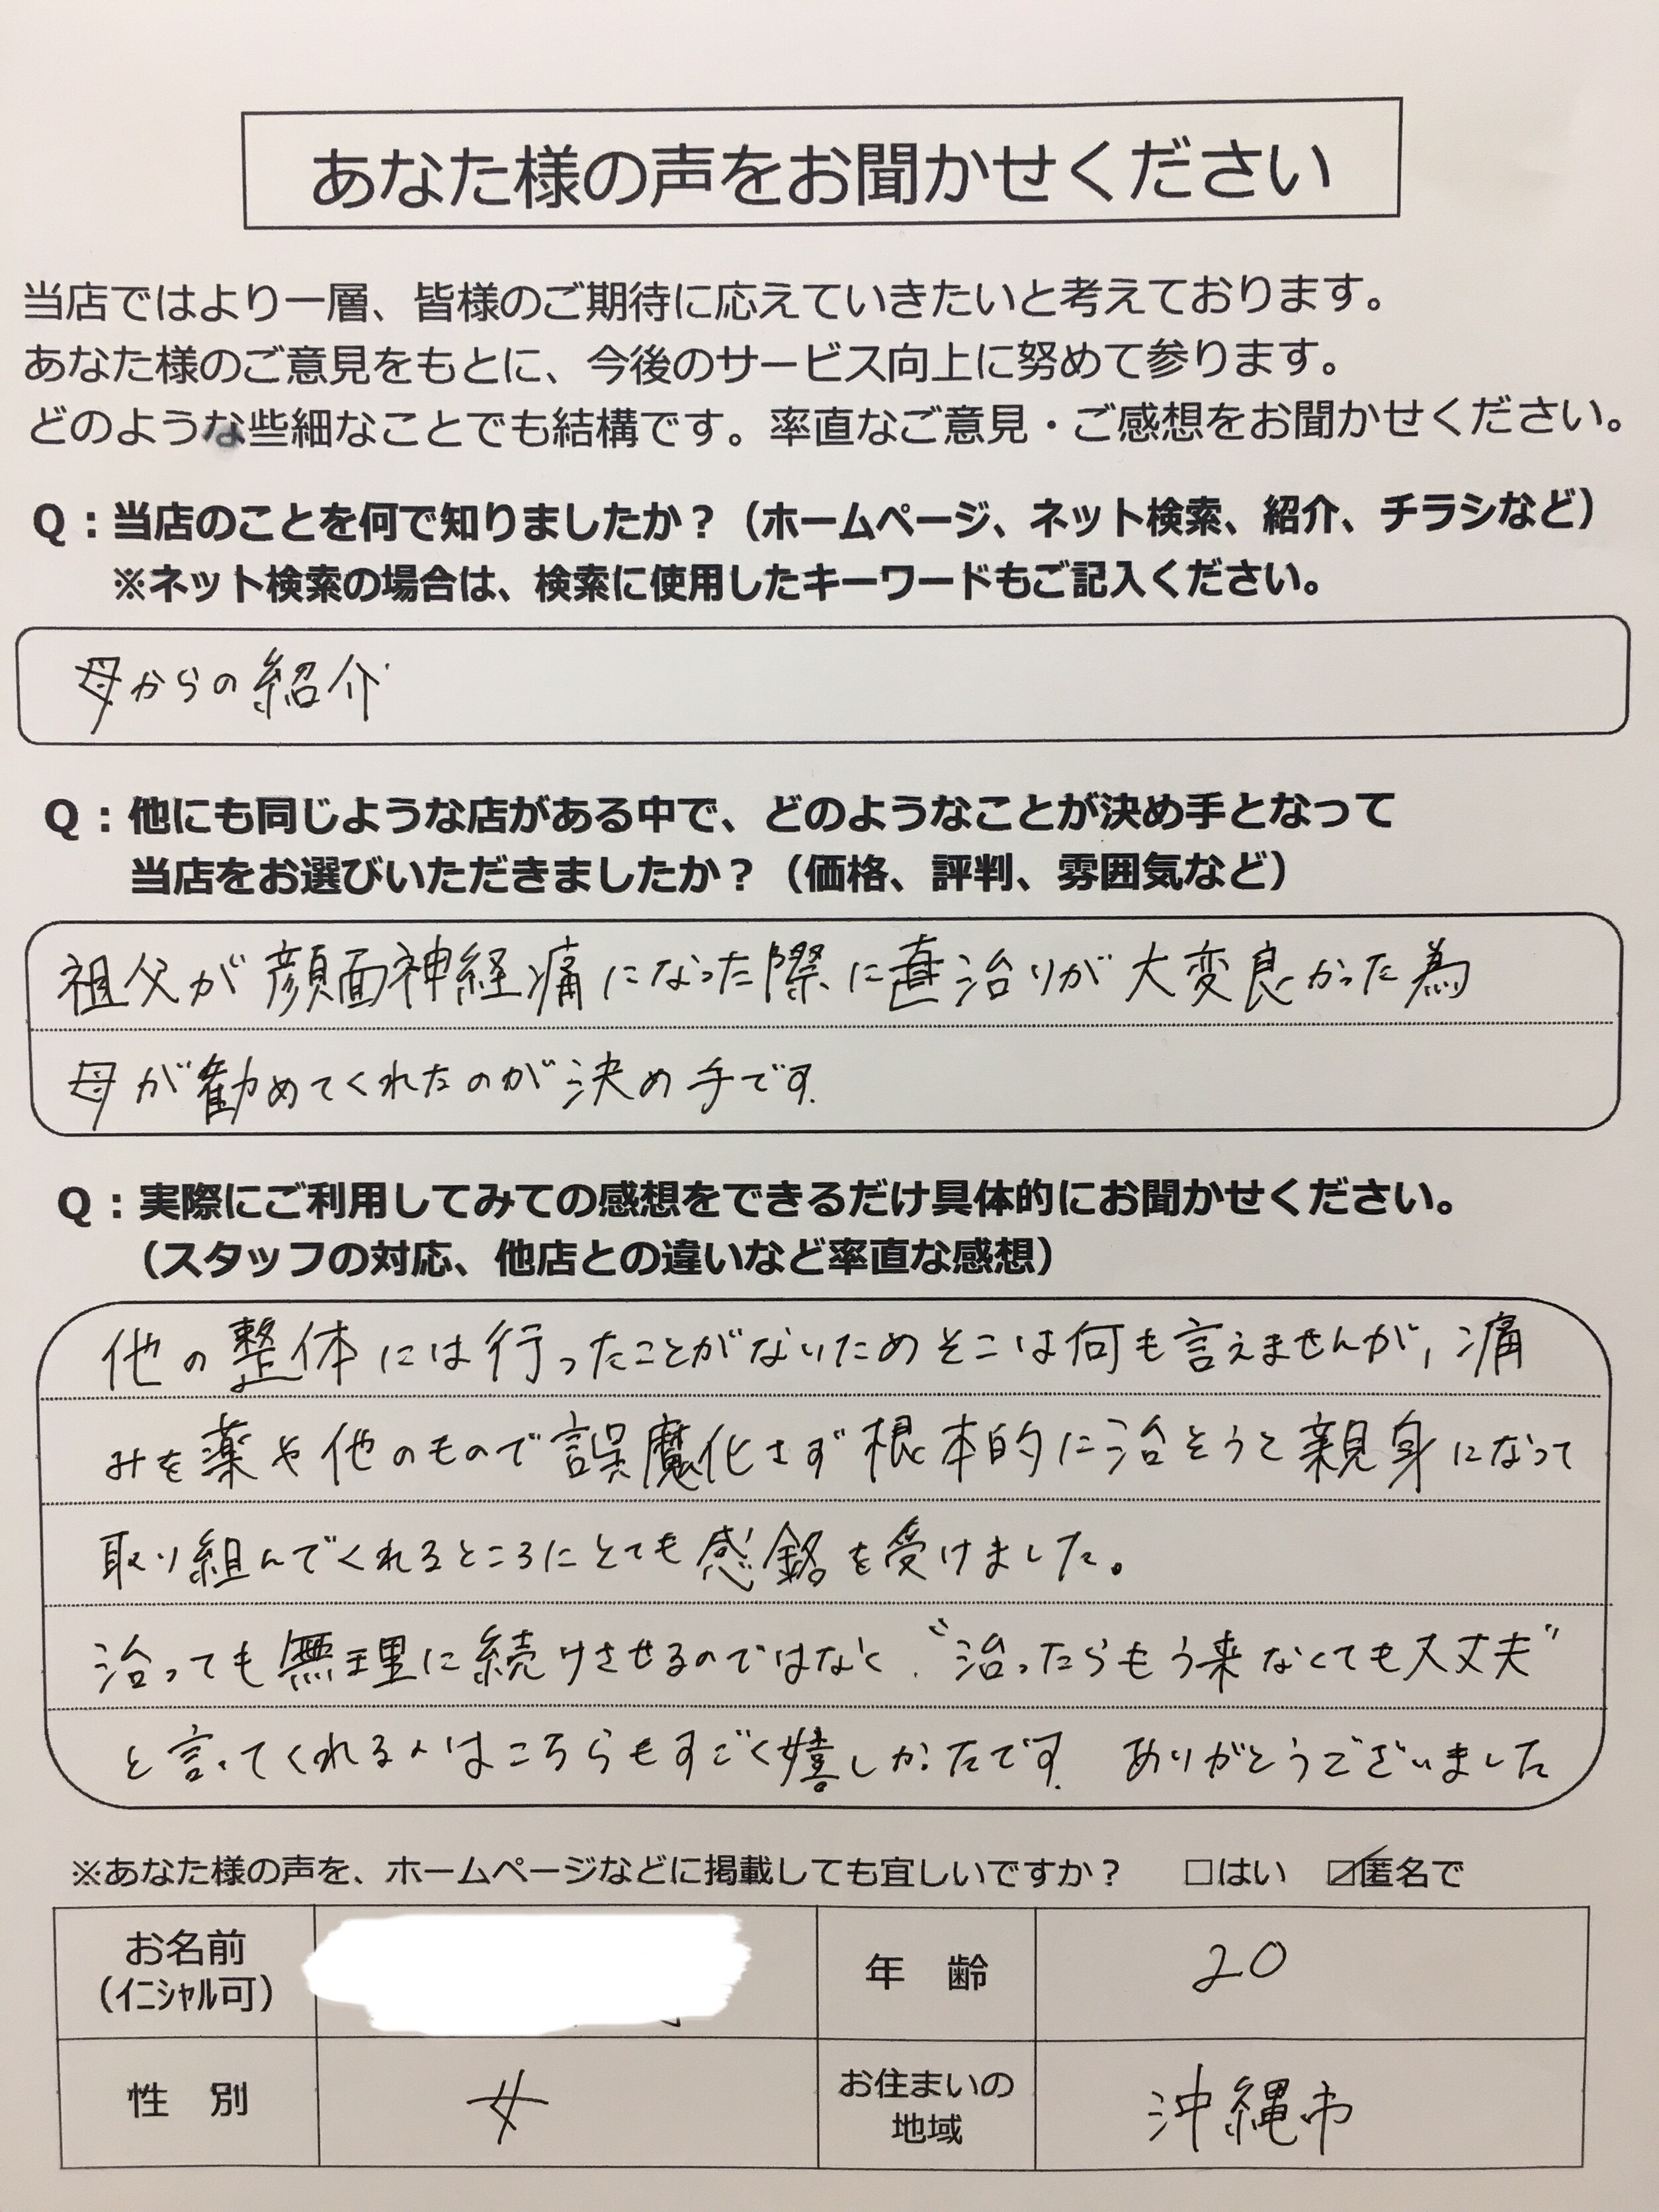 あなた様の声をお聞かせください
当店ではより一層、皆様のご期待に応えていきたいと考えております。
あなた様のご意見をもとに、今後のサービス向上に努めて参ります。
どのような些細なことでも結構です。率直なご意見・ご感想をお聞かせください。
Q：当店のことを何で知りましたか？（ホームページ、ネット検索、紹介、チラシなど）
※ネット検索の場合は、検索に使用したキーワードもご記入ください。
母からの紹介
Q：他にも同じような店がある中で、どのようなことが決め手となって
当店をお選びいただきましたか？（価格、評判、雰囲気など）
祖父が顔面神経痛になった際に直治りが大変良かった為
母が勧めてくれたのが決め手です.
Q：実際にご利用してみての感想をできるだけ具体的にお聞かせください。
（スタッフの対応、他店との違いなど率直な感想）
他の整体には行ったことがないためそこは何も言えませんが, 痛
みを薬や他のもので誤魔化さず根本的に治そうと親身になって
取り組んでくれるところにとても感銘を受けました。
治っても無理に続けさせるのではなく、"治ったらもう来なくても大丈夫"
と言ってくれる人はこちらもすごく嬉しかったです. ありがとうございました
※あなた様の声を、ホームページなどに掲載しても宜しいですか？ □はい ☑匿名で
お名前
（イニシャル可）
年 齢 20
性 別 女
お住まいの
地域
沖縄市